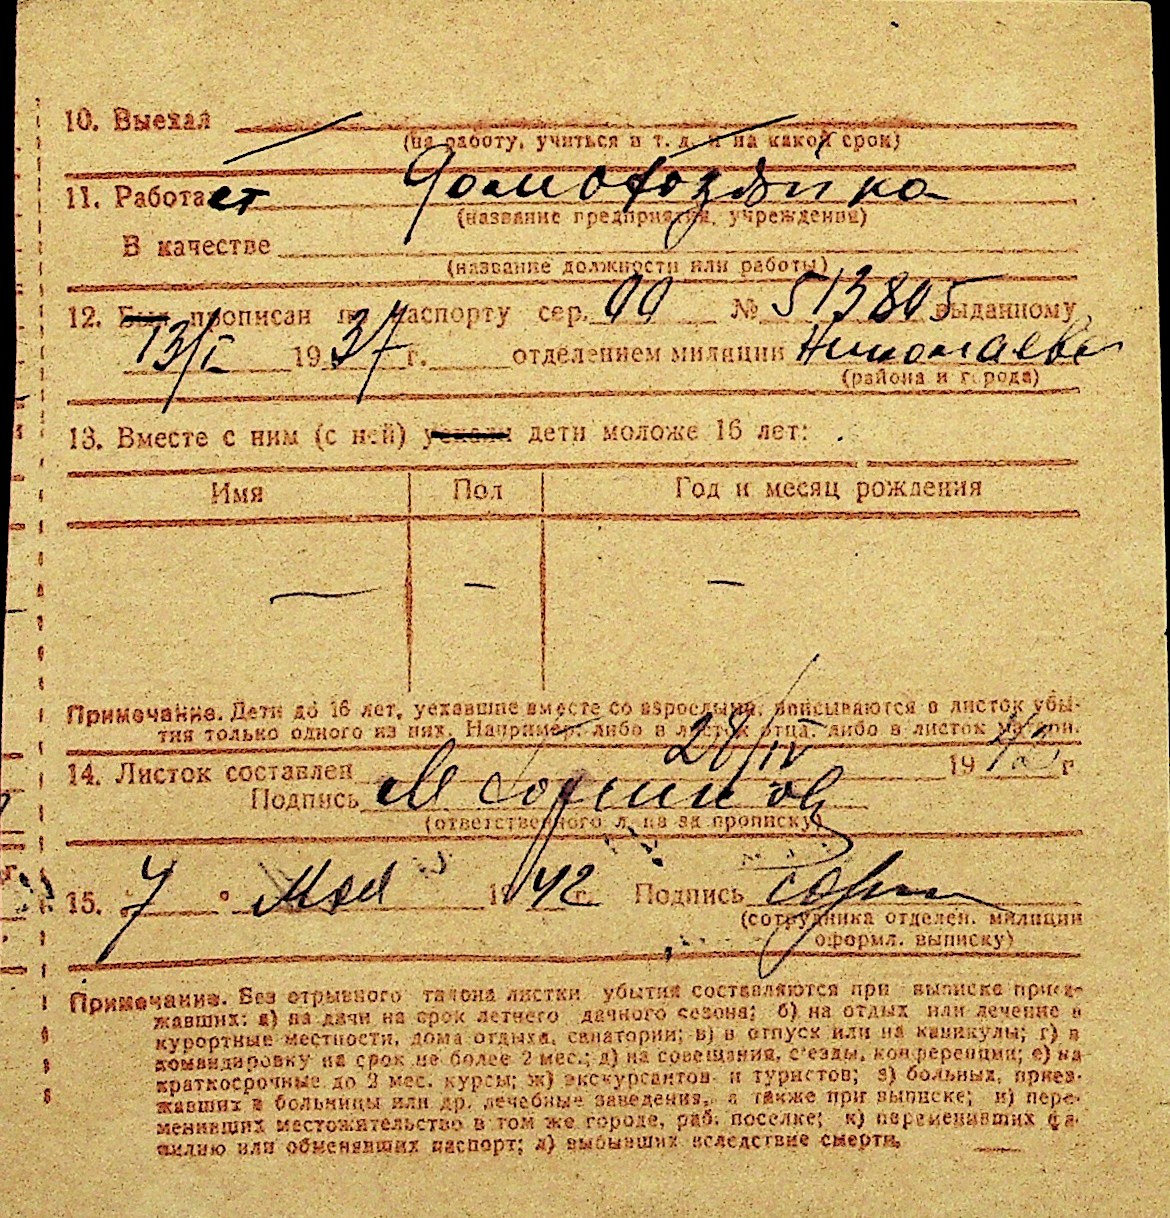 10. Выехал
(на работу, учиться и т. д. и на какой срок)
11. Работает Домохозяйка
(название предприятия, учреждения)
В качестве
(название должности или работы)
12. Был прописан по паспорту сер. № 513805 выданному
13/I 1937 г. отделением милиции Николаев
(района и города)
13. Вместе с ним (с ней) уехали дети моложе 16 лет:
Имя Пол Год и месяц рождения
— — —
Примечание. Дети до 16 лет, уехавшие вместе со взрослыми, вписываются в листок убы-
тия только одного из них. Например: либо в листок отца, либо в листок матери.
14. Листок составлен 28/IV 1942 г.
Подпись
(ответственного лица за прописку)
15. 7 " Мая 1942 г. Подпись
(сотрудника отделен. милиции
оформл. выписку)
Примечание. Без отрывного талона листки убытия составляются при выписке приез-
жавших: а) на дачи на срок летнего дачного сезона; б) на отдых или лечение в
курортные местности, дома отдыха, санатории; в) в отпуск или на каникулы; г) в
командировку на срок не более 2 мес.; д) на совещания, с'езды, конференции; е) на
краткосрочные до 2 мес. курсы; ж) экскурсантов и туристов; з) больных, приез-
жавших в больницы или др. лечебные заведения, а также при выписке; и) пере-
менивших местожительство в том же городе, раб. поселке; к) переменивших фа-
милию или обменявших паспорт; л) выбывших вследствие смерти.